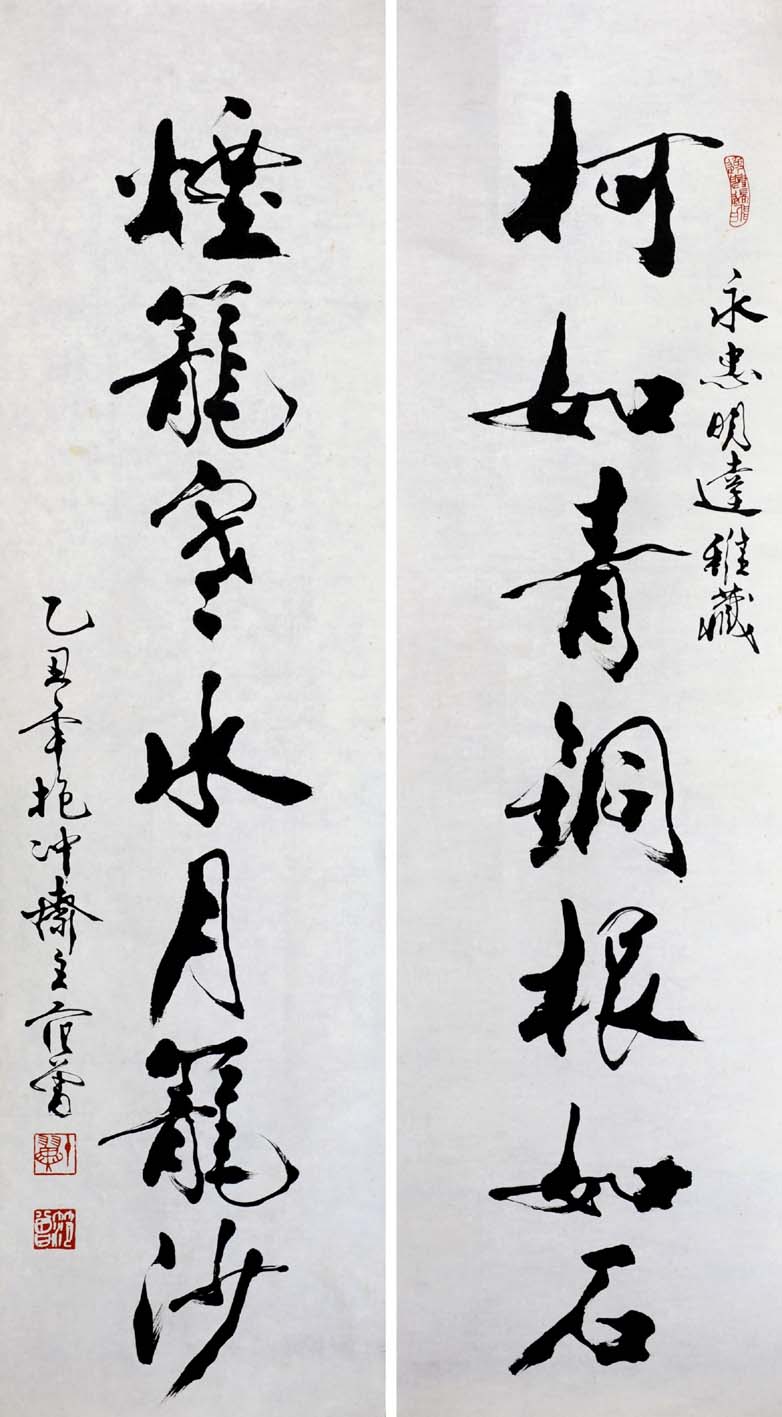 永忠明達雅藏
柯如青銅根如石
煙籠寒水月籠沙
乙丑年抱冲齋主范曾